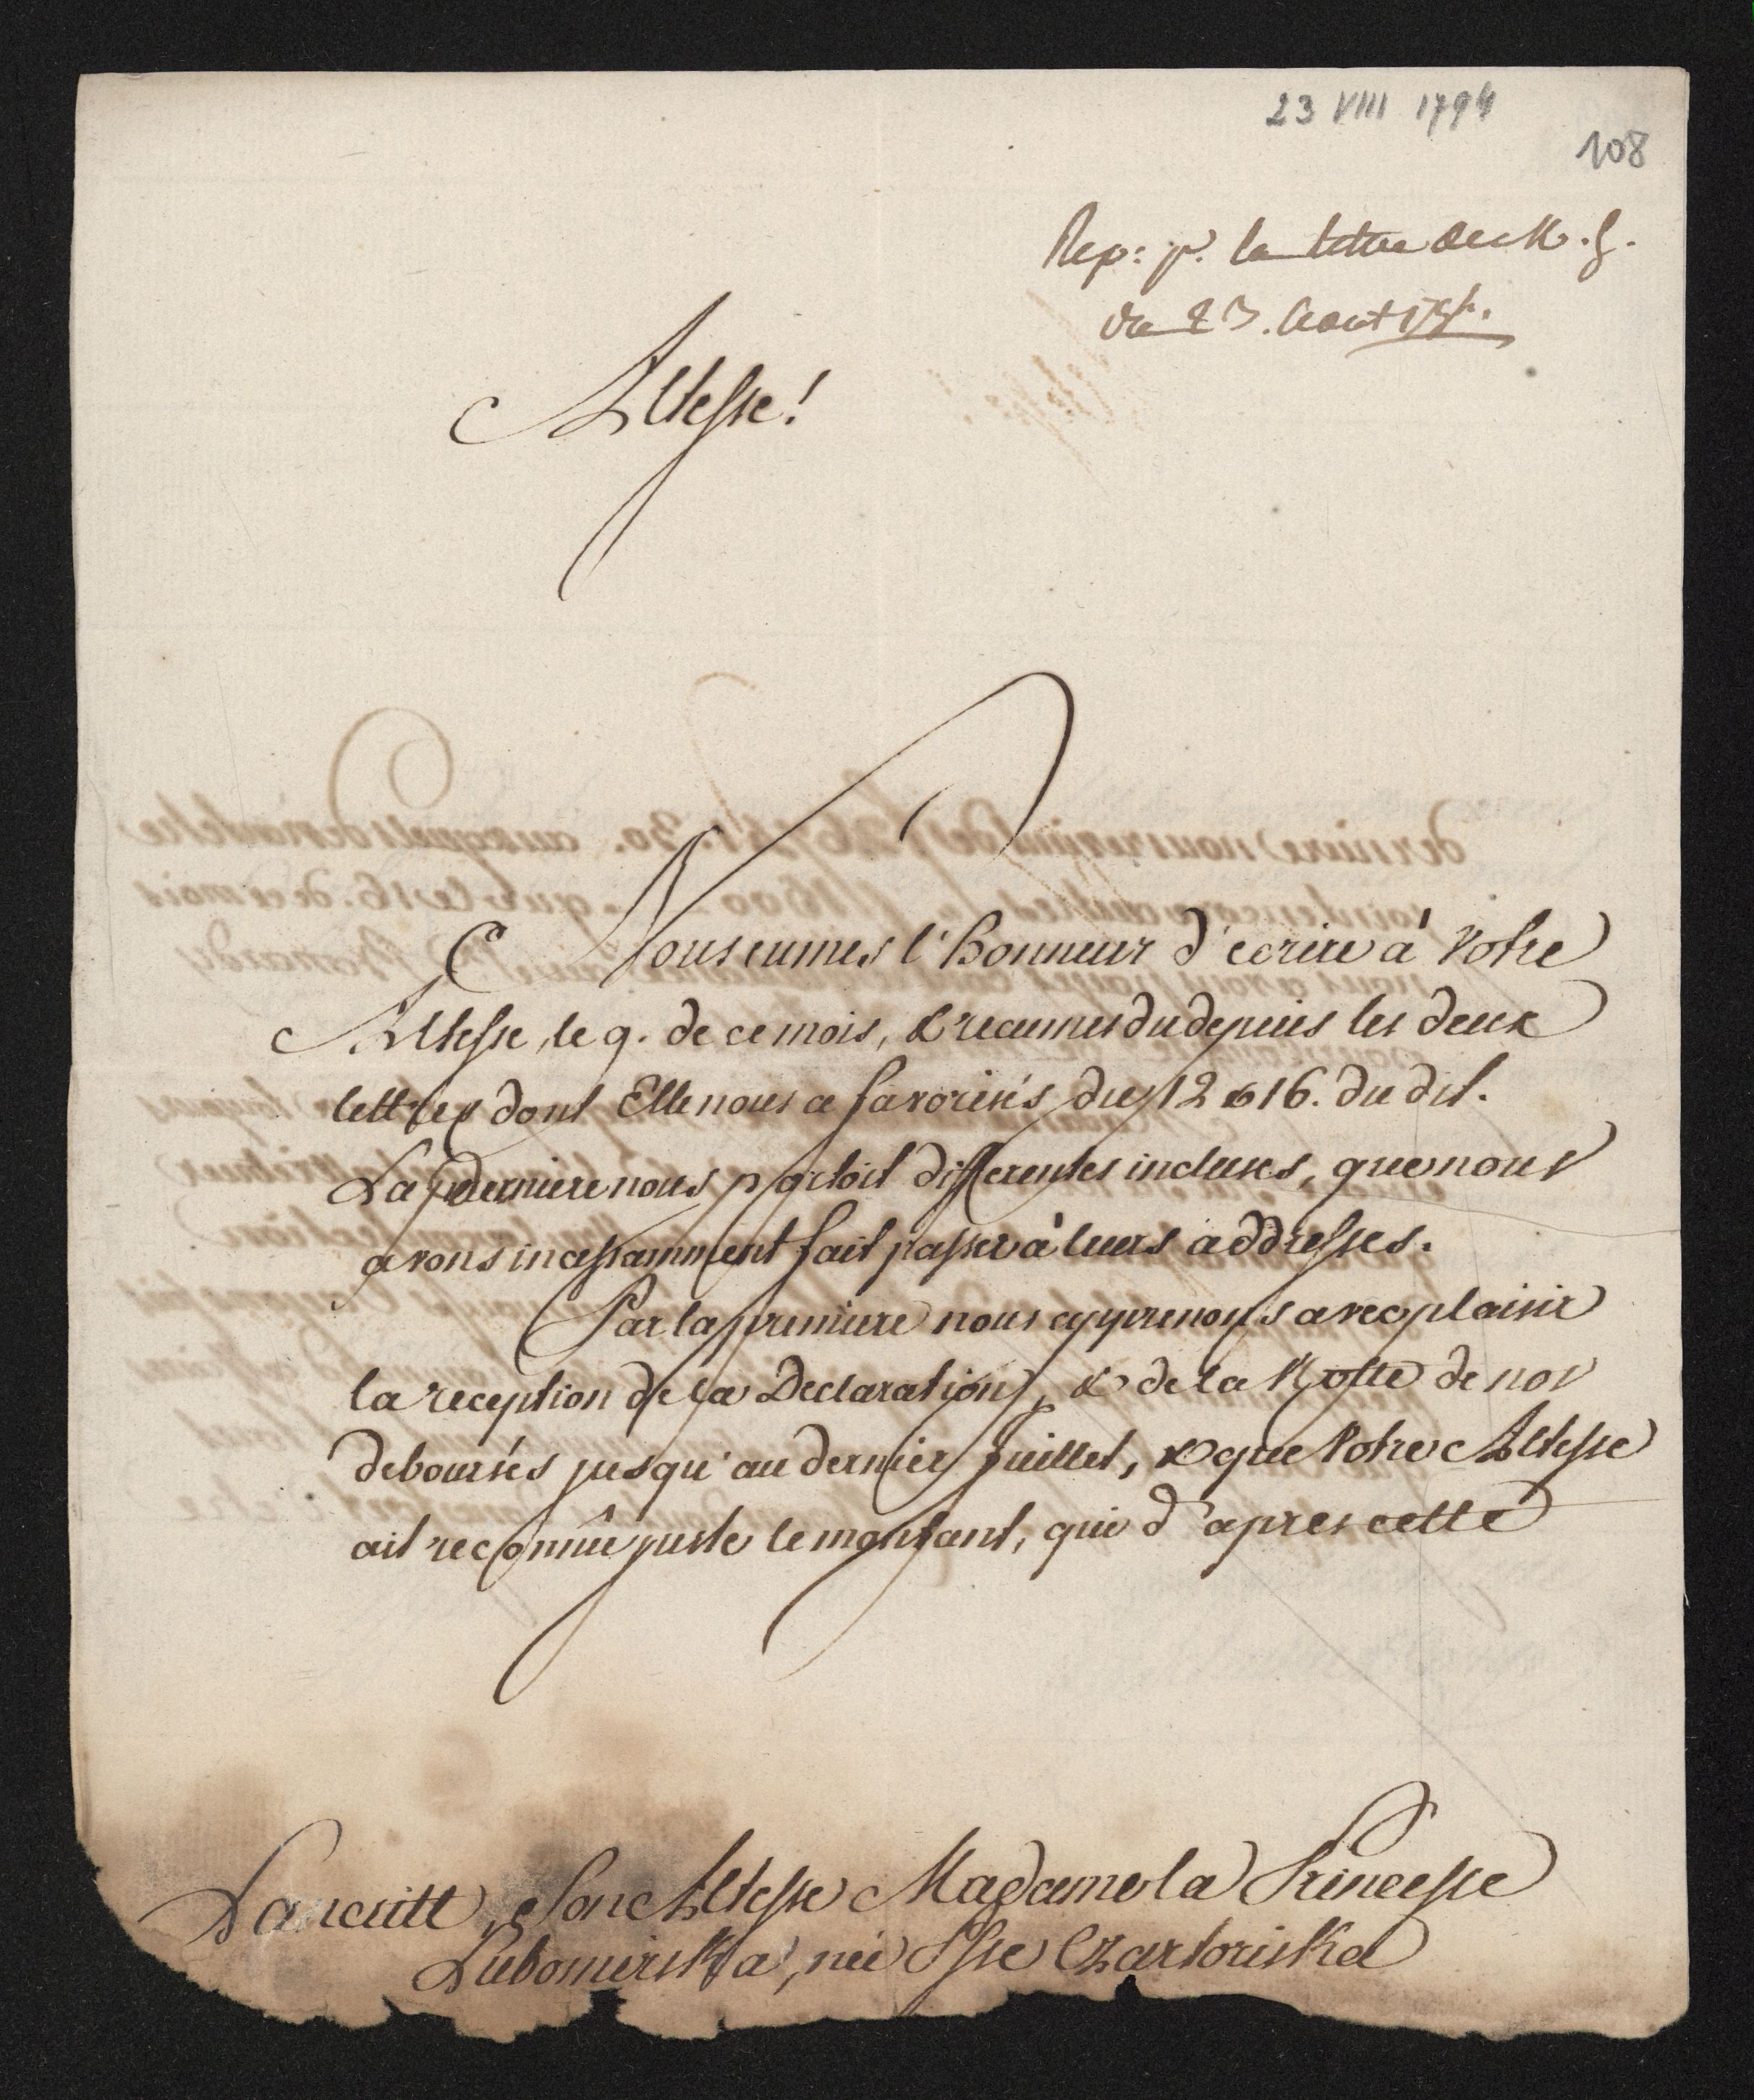 23 VIII 1794
108
Rep: p. la lettre de M. S.
du 23. Aout 94.
Altesse!
Nous eumes l'honneur d'ecrire à Votre
Altesse, le 9. de ce mois, & recumes du depuis les deux
lettres dont Elle nous a favorisés du 12 & 16. du dit.
La derniere nous portoit differentes incluses, que nous
avons incessamment fait passer à leurs addresses.
Par la premiere nous apprenons avec plaisir
la reception de la Declaration, & de la Notte de nos
deboursés jusqu'au dernier Juillet, & que Votre Altesse
ait reconnûe juste le montant, qui d'apres cette
Lancutt, Son Altesse Madame la Princesse
Lubomirska, née Psse Czartoriska